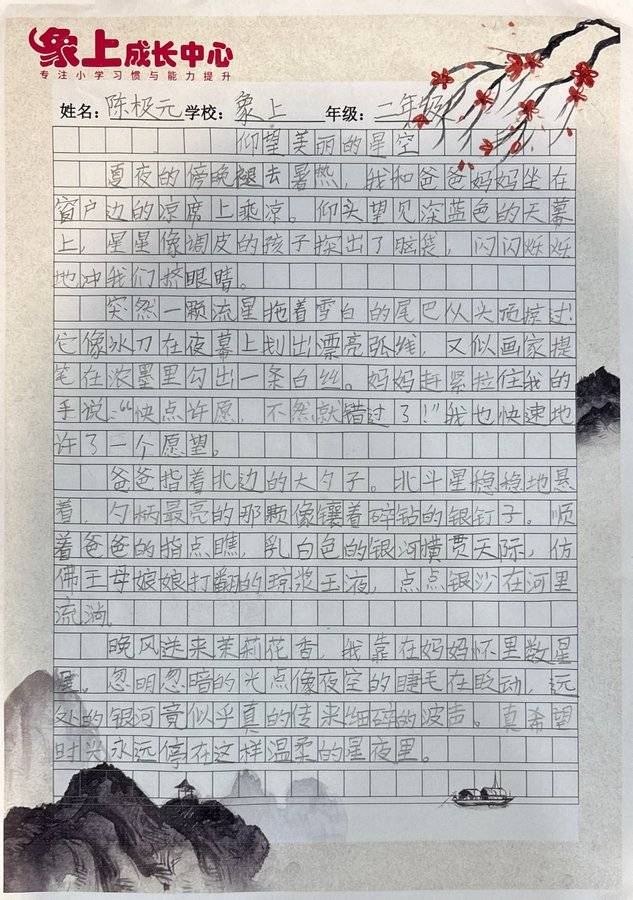 象上成长中心
专注小学习惯与能力提升
姓名：陈极元 学校：象上 年级：二年级
仰望美丽的星空
夏夜的傍晚褪去暑热，我和爸爸妈妈坐在
窗户边的凉席上乘凉。仰头望见深蓝色的天幕
上，星星像调皮的孩子探出了脑袋，闪闪烁烁
地冲我们挤眼睛。
突然一颗流星拖着雪白的尾巴从头顶掠过！
它像冰刀在夜幕上划出漂亮弧线，又似画家提
笔在浓墨里勾出一条白丝。妈妈赶紧拉住我的
手说：“快点许愿，不然就错过了！”我也快速地
许了一个愿望。
爸爸指着北边的大夕子。北斗星稳稳地悬
着，夕柄最亮的那颗像镶着碎钻的银钉子。顺
着爸爸的指点瞧，乳白色的银河横贯天际，仿
佛王母娘娘打翻的琼浆玉液，点点银沙在河里
流淌。
晚风送来茉莉花香，我靠在妈妈怀里数星
星。忽明忽暗的光点像夜空的睫毛在眨动，远
处的银河竟似乎真的传来细碎的波声。真希望
时光永远停在这样温柔的星夜里。